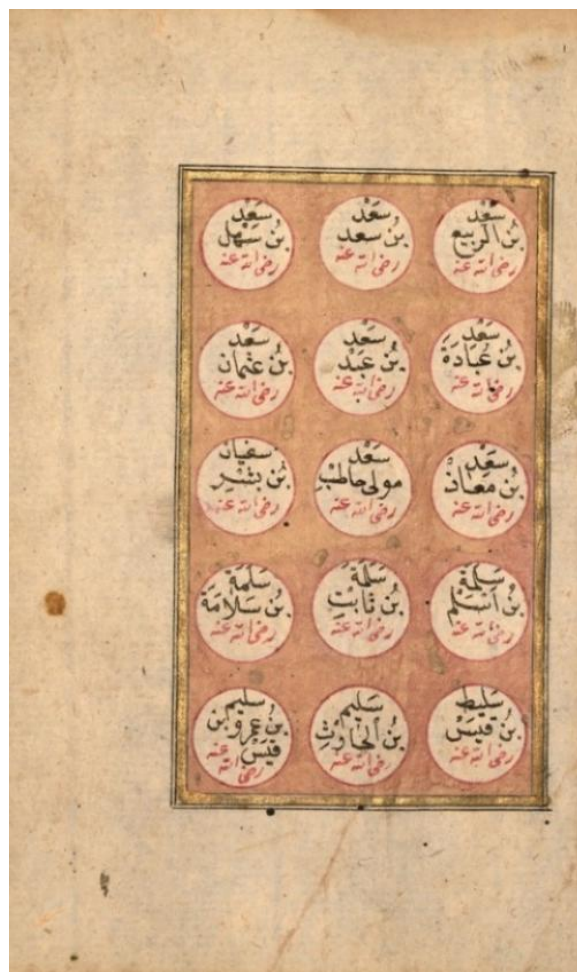 سَعْد
بْنُ الرَبيع
رضى الله عنه
سَعْد
بْنُ سعد
رضى الله عنه
سَعْد
بْنُ سَهْل
رضى الله عنه
سَعْد
بْنُ عُبَادَة
رضى الله عنه
سَعْد
بْنُ عَبْد
رضى الله عنه
سَعْد
بْنُ عثمان
رضى الله عنه
سَعْد
بْنُ مُعَاذ
رضى الله عنه
سَعْد
مولى حاطب
رضى الله عنه
سفيان
بْنُ بشْر
رضى الله عنه
سَلَمَة
بْنُ أسْلَم
رضى الله عنه
سَلَمَة
بْنُ ثابت
رضى الله عنه
سَلَمَة
بْنُ سَلامَة
رضى الله عنه
سَليط
بْنُ قيس
رضى الله عنه
سَليم
بْنُ الحارث
رضى الله عنه
سَليم
بْنُ عمرو بن
قيس
رضى الله عنه